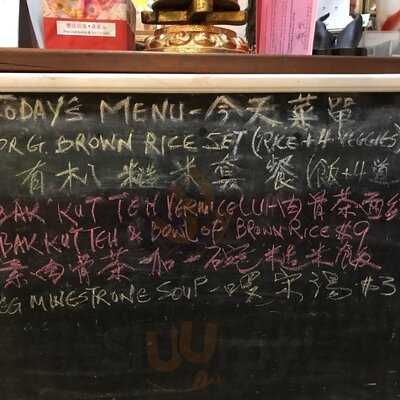 TODAY'S MENU-今天菜單
ORG. BROWN RICE SET (RICE+4 VEGGIES)
有机糙米套餐(飯+4道
BAK KUT TEH VERMICELLI-肉骨茶面線
BAK KUT TEH & BOWL OF BROWN RICE $9
素肉骨茶加一碗糙米飯
VEG MINESTRONE SOUP-湯 $3